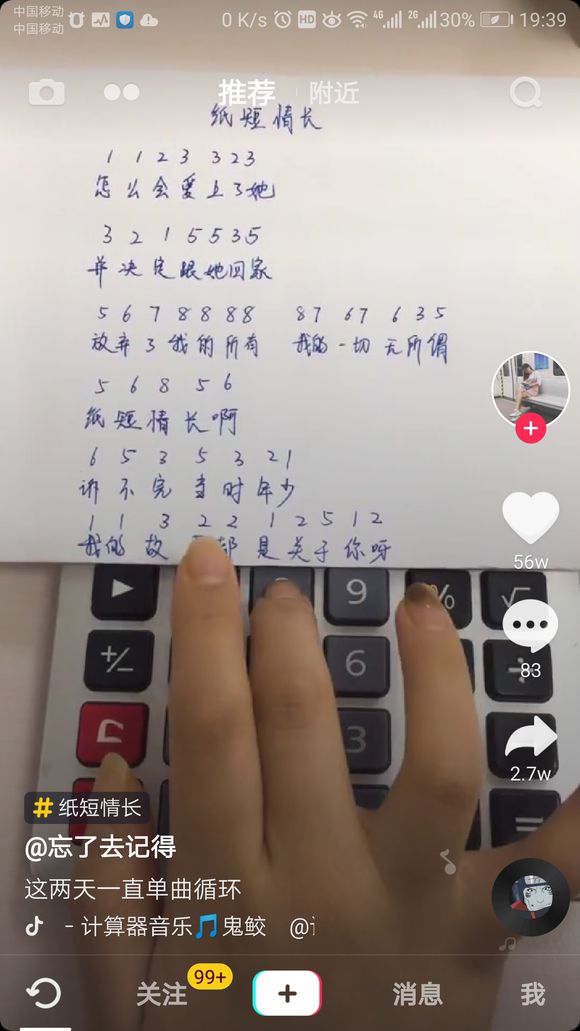 中国移动
中国移动
0 K/s HD 4G 2G 30% 19:39
推荐 附近
纸短情长
1 1 2 3 3 2 3
怎么会爱上了她
3 2 1 5 5 3 5
并决定跟她回家
5 6 7 8 8 8 8 8 7 6 7 6 3 5
放弃了我的所有 我的一切无所谓
5 6 8 5 6
纸短情长啊
6 5 3 5 3 2 1
诉不完当时年少
1 1 3 2 2 1 2 5 1 2
我的故 都是关于你呀
9 % √
+/- 6 ÷
3
=
56w
83
2.7w
# 纸短情长
@忘了去记得
这两天一直单曲循环
- 计算器音乐🎵鬼鲛 @
关注 99+ + 消息 我